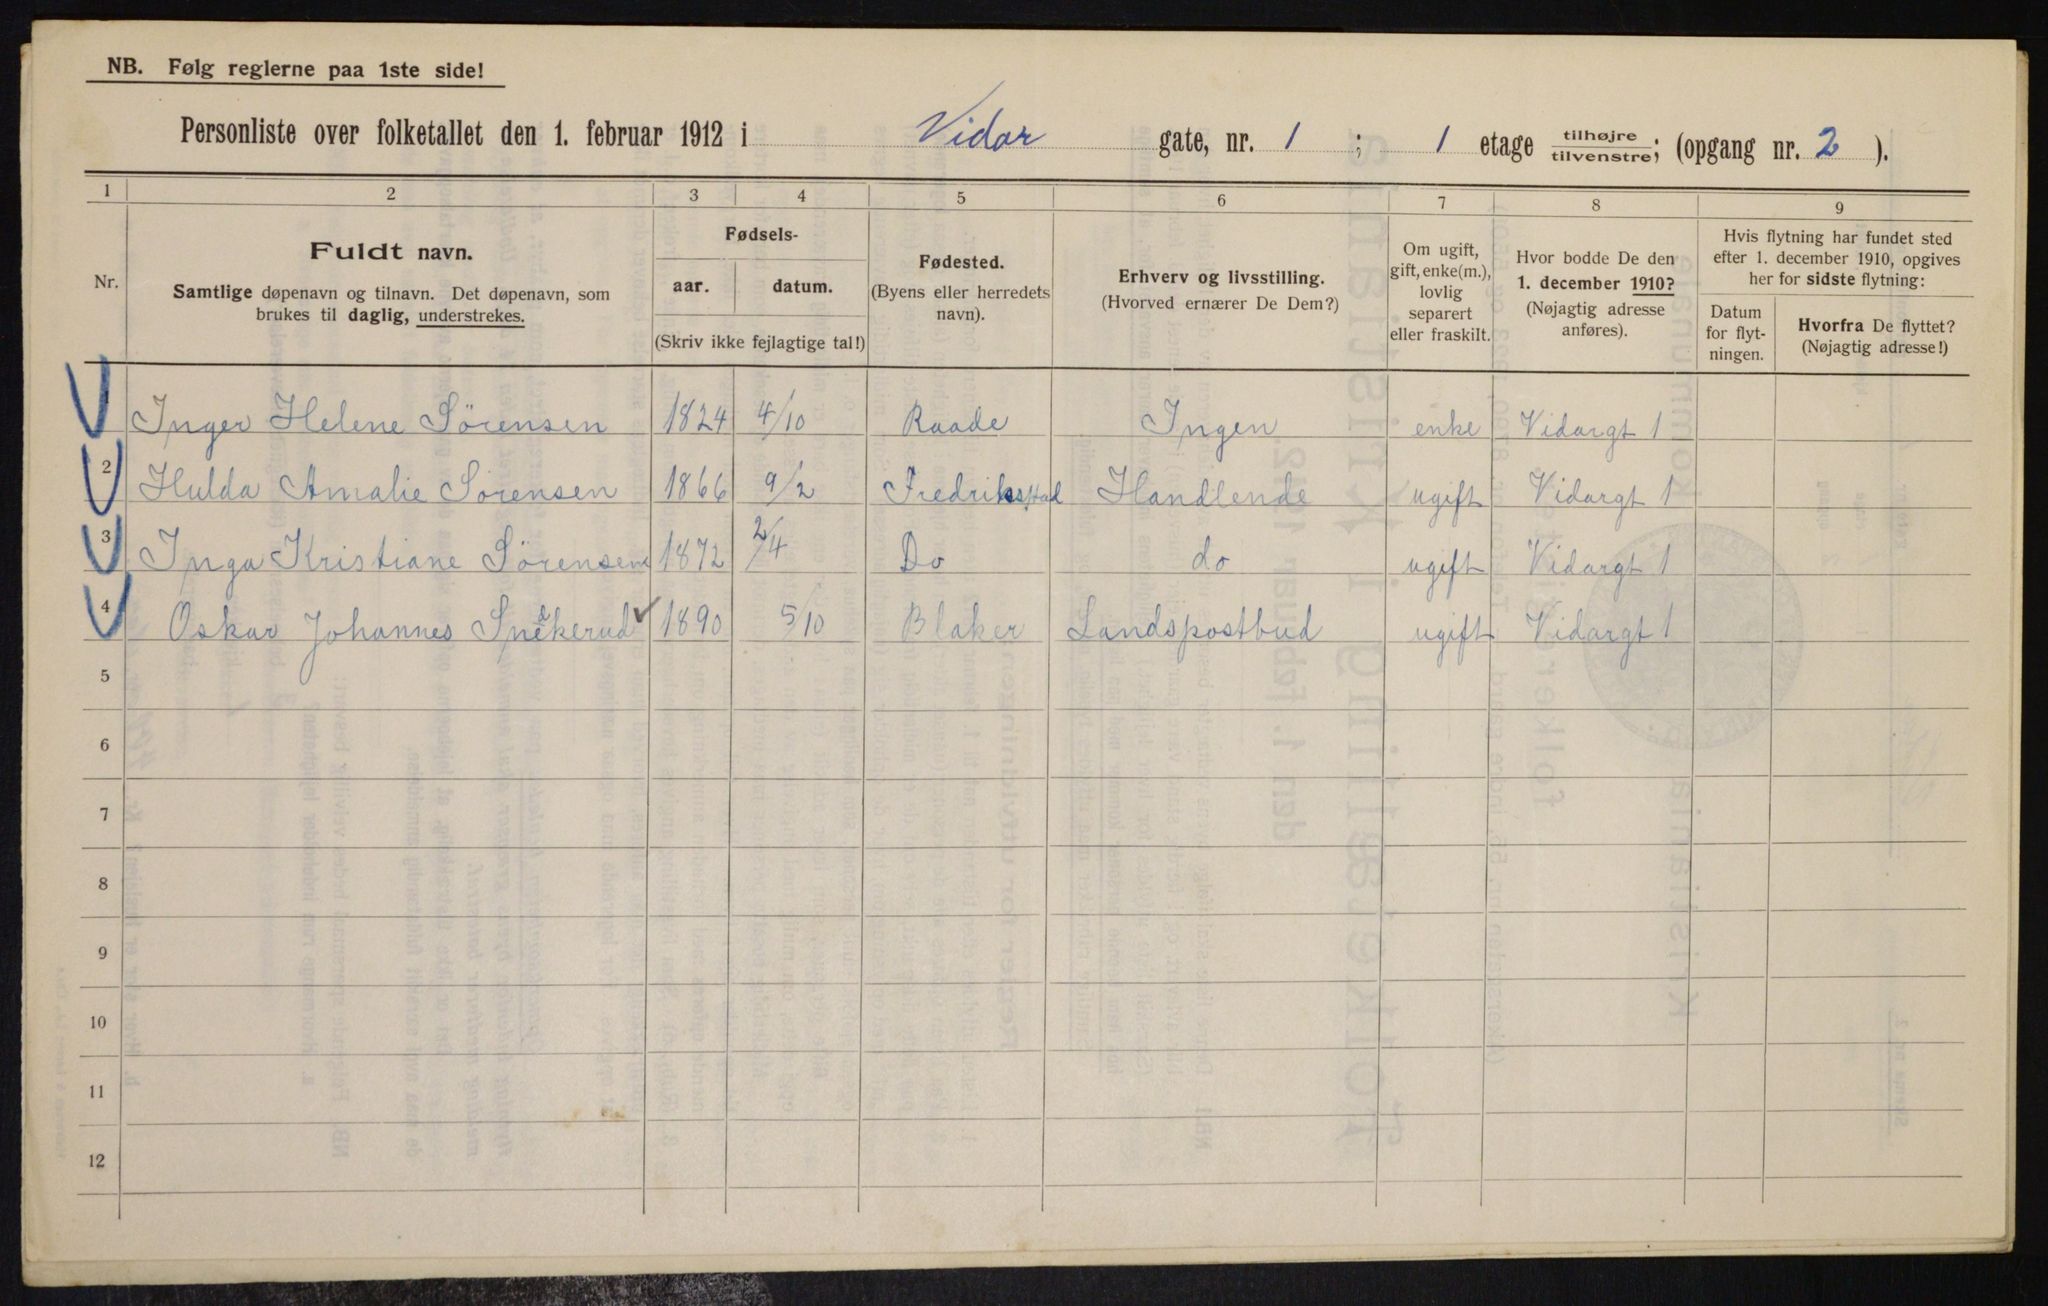 NB. Følg reglerne paa 1ste side!
Personliste over folketallet den 1. februar 1912 i Vidar gate, nr. 1 ; 1 etage tilhøjre tilvenstre; (opgang nr. 2 ).
1 2 3 4 5 6 7 8 9
Nr.
Fuldt navn.
Samtlige døpenavn og tilnavn. Det døpenavn, som
brukes til daglig, understrekes.
Fødsels-
aar. datum.
(Skriv ikke fejlagtige tal!)
Fødested.
(Byens eller herredets
navn).
Erhverv og livsstilling.
(Hvorved ernærer De Dem?)
Om ugift,
gift, enke(m.),
lovlig
separert
eller fraskilt.
Hvor bodde De den
1. december 1910?
(Nøjagtig adresse
anføres).
Hvis flytning har fundet sted
efter 1. december 1910, opgives
her for sidste flytning:
Datum
for flyt-
ningen.
Hvorfra De flyttet?
(Nøjagtig adresse!)
Inger Helene Sørensen 1824 4/10 Raade Ingen enke Vidargt 1
2 Hulda Amalie Sørensen 1866 9/2 Fredriksstad Handlende ugift Vidargt 1
3 Inga Kristiane Sørensen 1872 2/4 Do do ugift Vidargt 1
4 Oskar Johannes 1890 5/10 Blaker Landspostbud ugift Vidargt 1
5
6
7
8
9
10
11
12